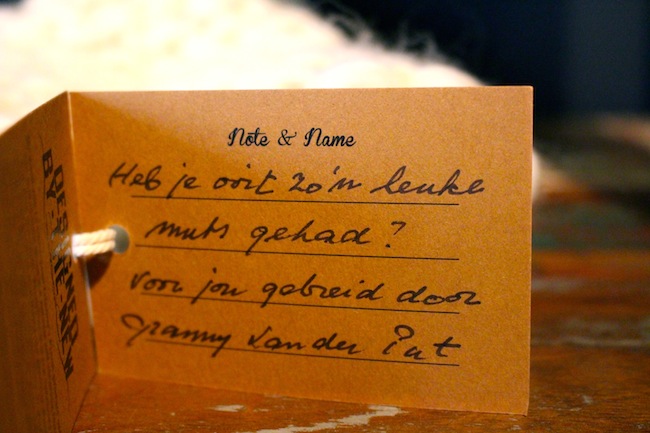 Note & Name
Heb je ooit zo'n leuke
muts gehad?
voor jou gebreid door
Granny van der Put
DESIGNED